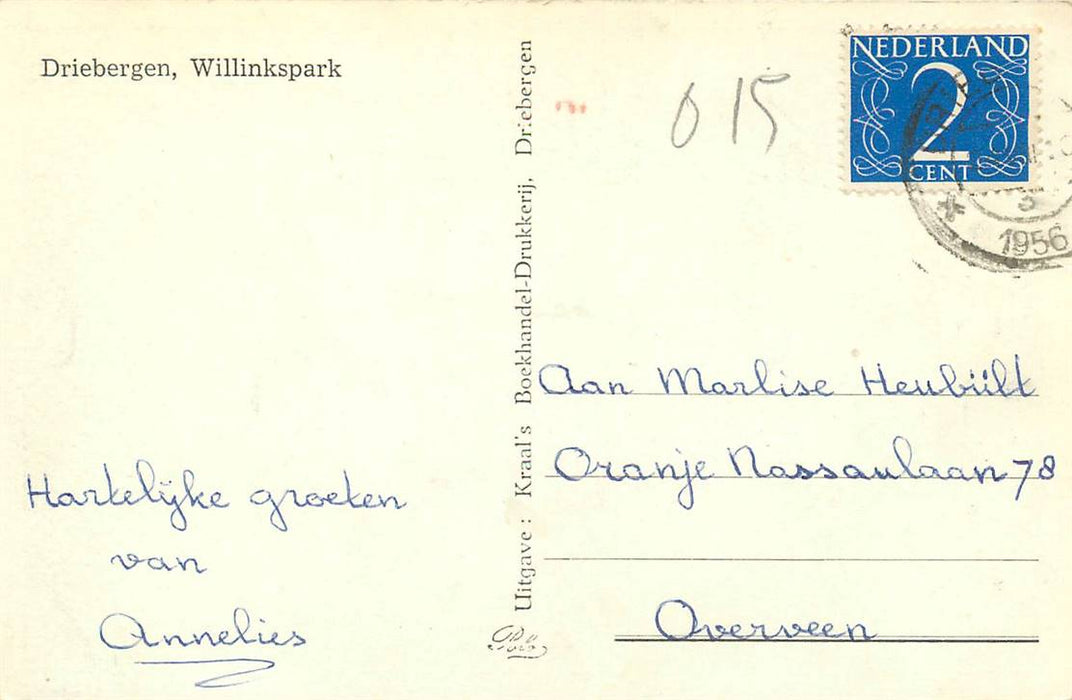 Driebergen, Willinkspark
015
NEDERLAND
2
CENT
3
1956
Uitgave: Kraal's Boekhandel-Drukkerij, Driebergen
Aan Marlise Heubült
Oranje Nassaulaan 78
Overveen
Hartelijke groeten
van
Annelies